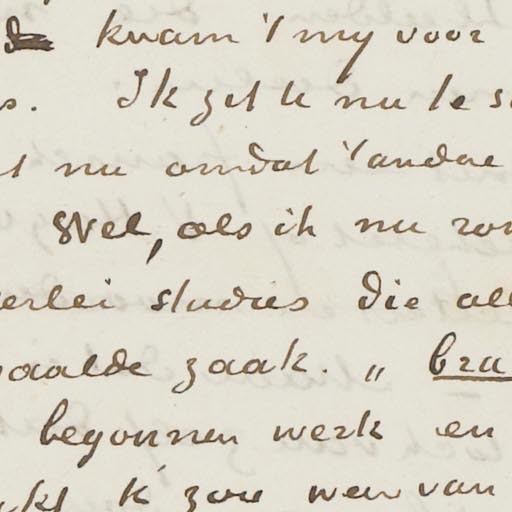 kwam 't my voor
s. Ik zet U nu te s
t nu omdat 't andere
Wel, als ik nu zon
erlei studies die all
paalde zaak. „ bra
begonnen werk en
k zou weer van